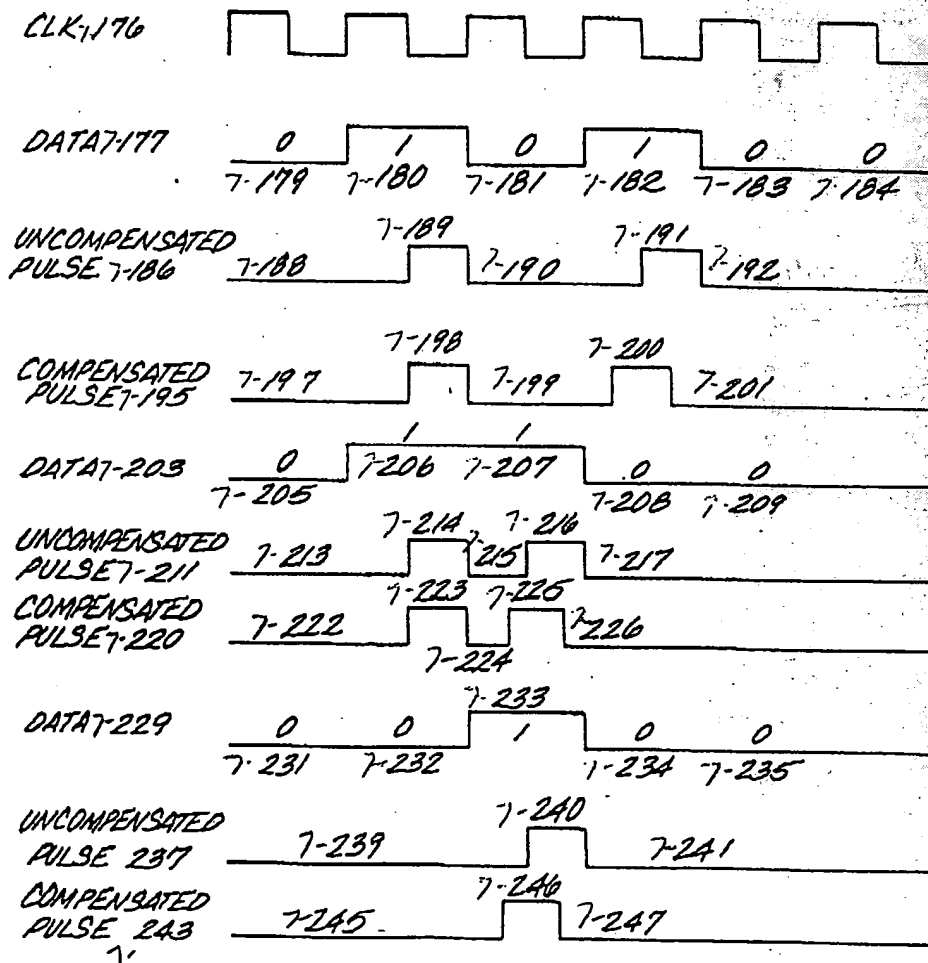 CLK7-176
DATA7-177
0 1 0 1 0 0
7-179 7-180 7-181 7-182 7-183 7-184
UNCOMPENSATED
PULSE 7-186
7-188 7-189 7-190 7-191 7-192
COMPENSATED
PULSE7-195
7-197 7-198 7-199 7-200 7-201
DATA7-203
0 1 1 0 0
7-205 7-206 7-207 7-208 7-209
UNCOMPENSATED
PULSE7-211
7-213 7-214 7-215 7-216 7-217
COMPENSATED
PULSE7-220
7-222 7-223 7-224 7-225 7-226
DATA7-229
0 0 1 0 0
7-231 7-232 7-233 7-234 7-235
UNCOMPENSATED
PULSE 237
7-239 7-240 7-241
COMPENSATED
PULSE 243
7-
7-245 7-246 7-247